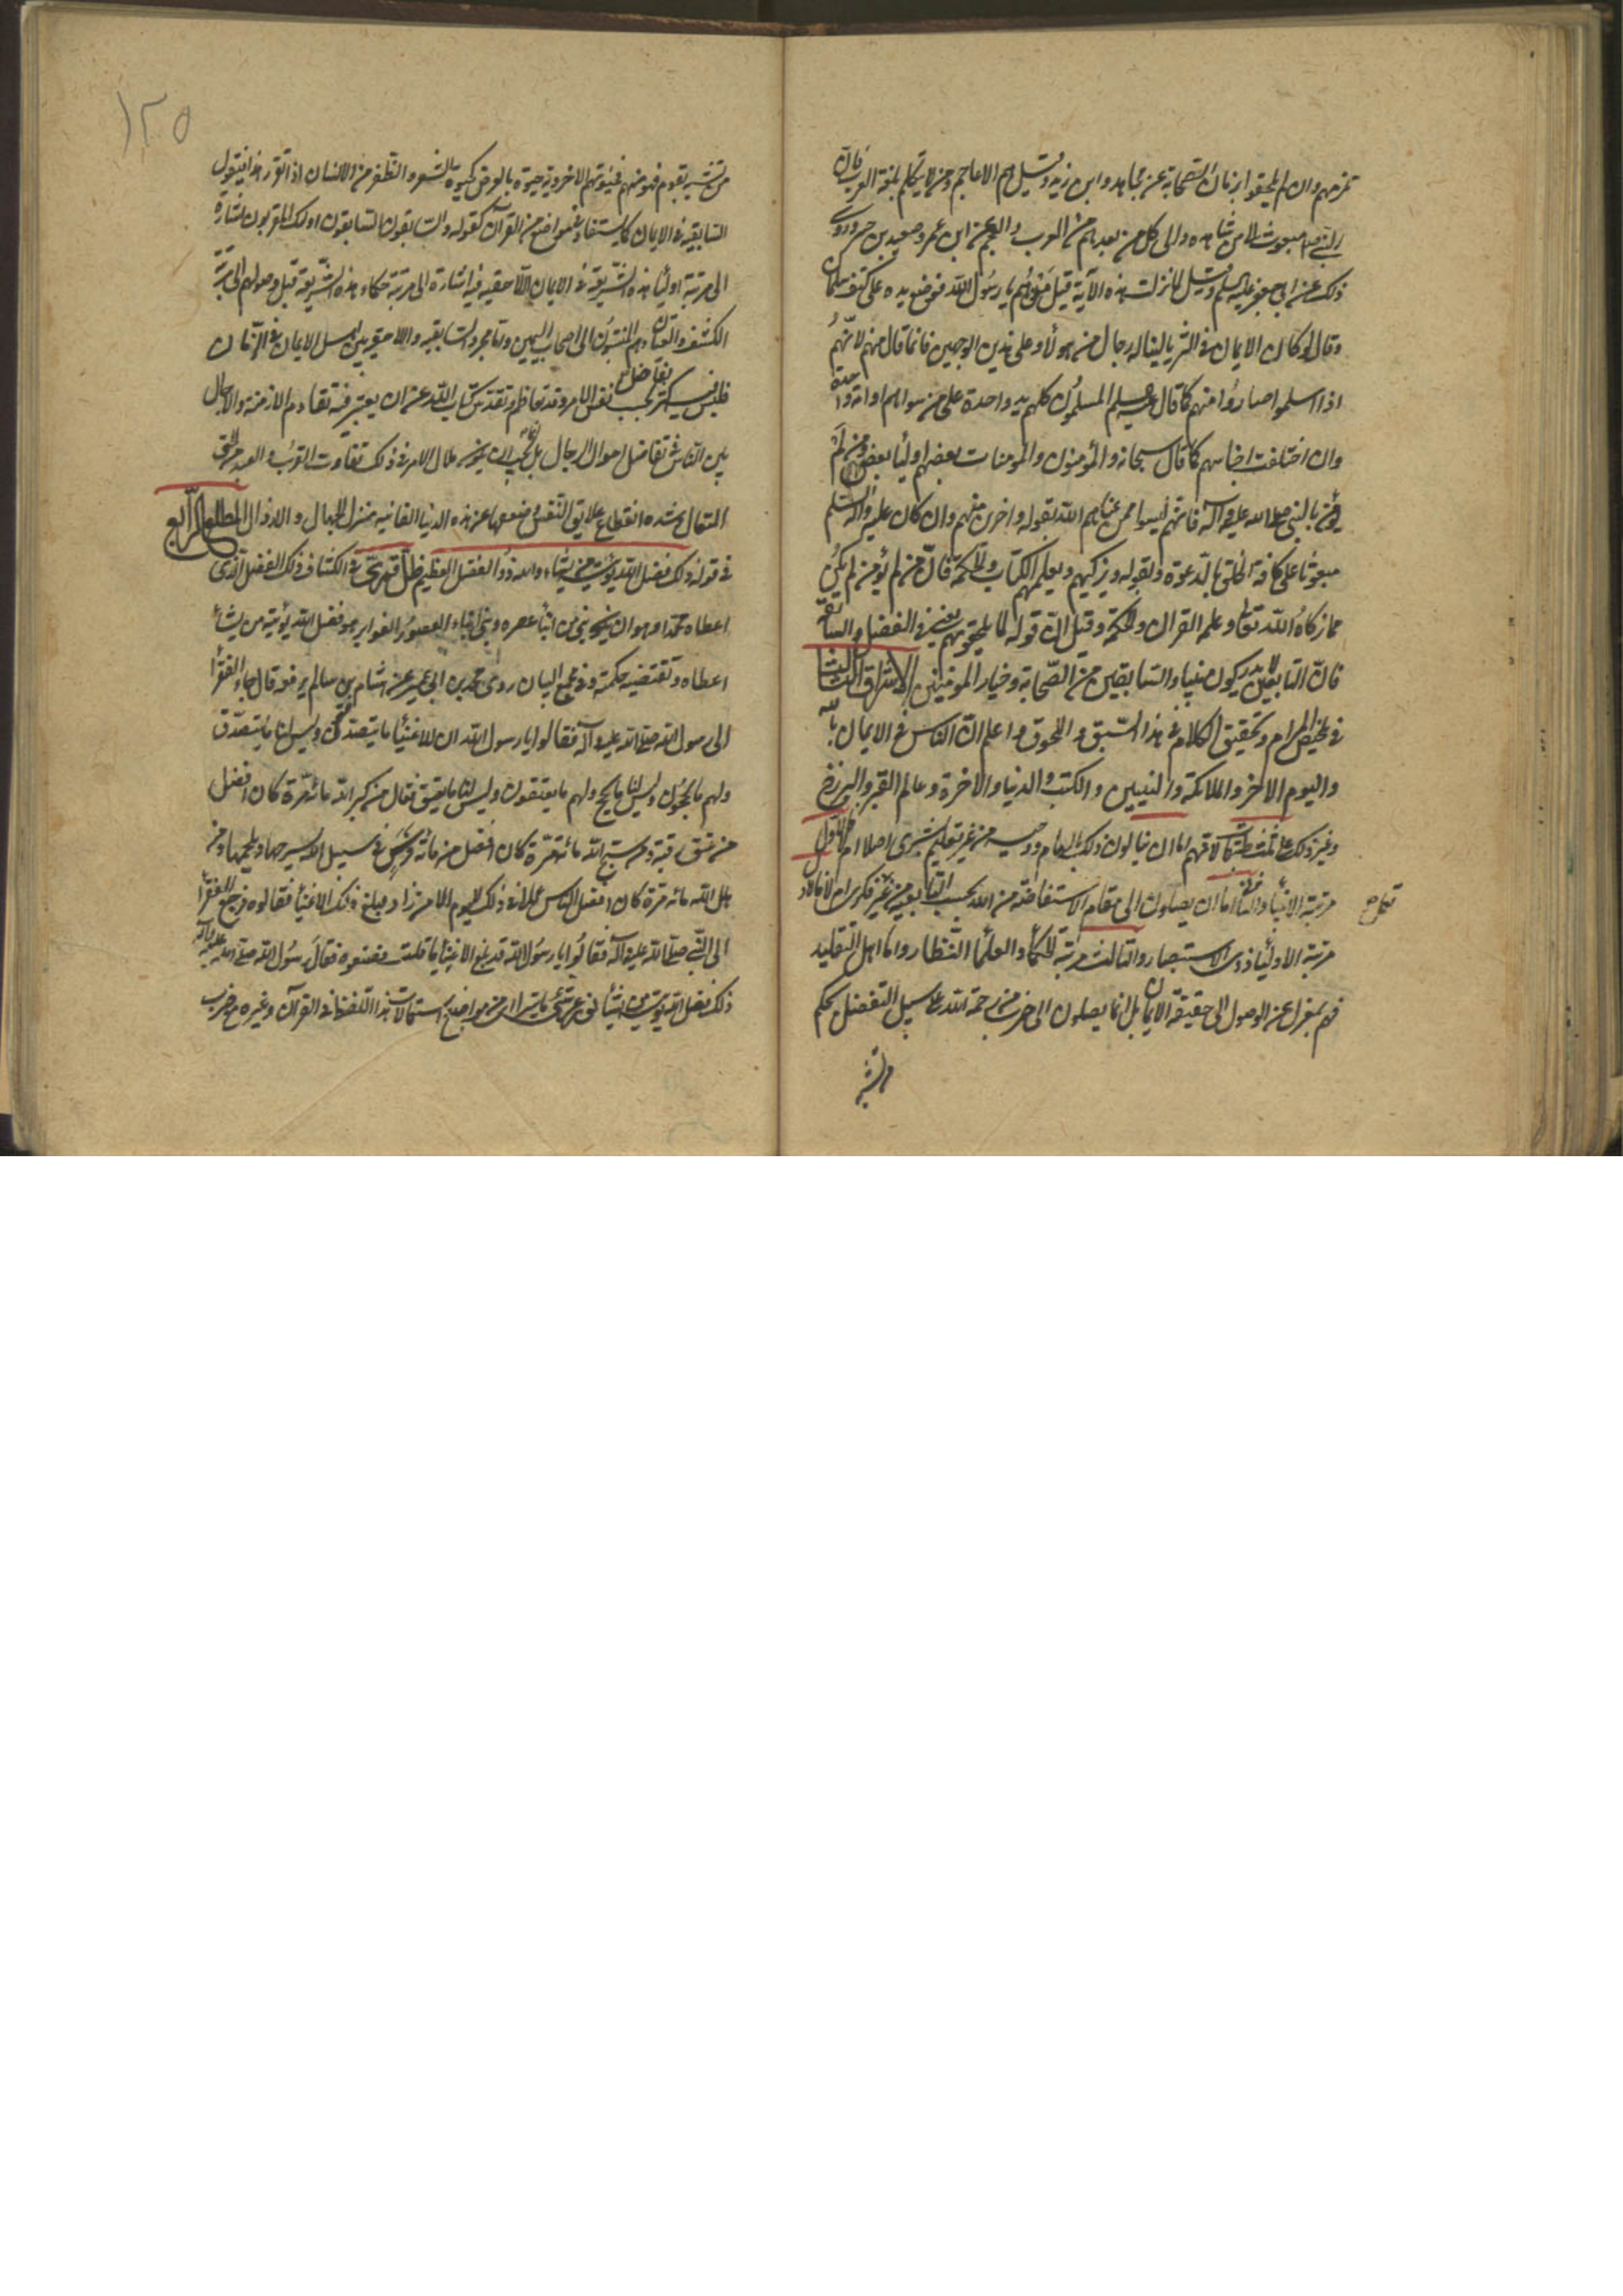 تمزمهم وان لم يلحقوا بزمان الصحابة عن مجاهد وابن زيد وقيل هم الاعاجم ومن لا يتكلم بلغة العرب فان
النبي مبعوث الى من شاهده والى كل من بعدهم من العرب والعجم عن ابن عمر وسعيد بن جبير وروى
ذلك عن ابي جعفر عليه السلم وقيل لما نزلت هذه الآية قيل من هم يا رسول الله فوضع يده على كتف سلمان
وقال لو كان الايمان في الثريا لناله رجال من هؤلاء وعلى هذين الوجهين فانما قال منهم لانهم
اذا اسلموا صاروا منهم كما قال المسلمون كلهم يد واحدة على من سواهم وامة واحدة
وان اختلفت اجناسهم كما قال سبحانه والمؤمنون والمؤمنات بعضهم اولياء بعض ومن لم
يؤمن بالنبي صلى الله عليه وآله فانهم ليسوا ممن عناهم الله بقوله واخرين منهم وان كان عليه وآله السلم
مبعوثا على كافة الخلق بالدعوة ولقوله ويزكيهم ويعلمهم الكتاب والحكمة فان من لم يؤمن لم يكن
ممن زكاه الله تعالى وعلم القران والحكمة وقيل ان قوله لما يلحقوا بهم يعني في الفضل والسابقة
فان التابعين لا يدركون السابقين من الصحابة وخيار المؤمنين الاشراق الثالث
في تلخيص المرام وتحقيق الكلام في هذا السبق واللحوق واعلم ان الناس في الايمان بالله
واليوم الاخر والملائكة والنبيين والكتب والدنيا والاخرة وعالم القبر والبرزخ
وغير ذلك على ثلث طبقات لانهم اما ان ينالون ذلك بالهام ووحي من غير تعليم بشرى اصلا ام لا فالاول
مرتبة الانبياء والثاني اما ان يصلون الى مقام الاستفاضة من الله بحسب التابعية من غير فكرى ام لا فالاول
تعلم ح
مرتبة الاولياء ذوى الاستبصار والثالث مرتبة الحكماء والعلماء النظار واما اهل التقليد
فهم بمعزل عن الوصول الى حقيقة الايمان بل انما يصلون الى ضرب من رحمة الله على سبيل التفضل بحكم
من تشبه
١٢٥
من تشبه بقوم فهو منهم فحيوتهم الاخروية حيوة بالعرض كحيوة الشعر والظفر من الانسان اذا تقرر هذا فنقول
السابقية في الايمان كما يستفاد من مواضع من القرآن كقوله والسابقون السابقون اولئك المقربون اشارة
الى مرتبة اولياء هذه الشريعة في الايمان واللاحقية فيه اشارة الى مرتبة حكماء هذه الشريعة قبل وصولهم الى مرتبة
الكشف والعيان وهم المنتسبون الى اصحاب اليمين واما مجرد السابقية واللاحقية بين اهل الايمان في الزمان
فليس فيه كثير تفاضل بحسب نفس الامر وقد تعاظم وتقدس كتاب الله عن ان يعتبر فيه تقادم الازمنة والاجال
بين الناس في تفاضل احوال الرجال بل يجب ان يكون ملاك الامر في ذلك تفاوت القرب والبعد من الحق
المتعال وشدة انقطاع علايق النفس وضعفها عن هذه الدنيا الفانية منزل الجهال والارذال المطلع الرابع
في قوله ذلك فضل الله يؤتيه من يشاء والله ذو الفضل العظيم في الكشاف ذلك الفضل الذى
اعطاه محمدا وهو ان يكون نبي من ابناء عصره ونبي ابناء العصور الغوابر هو فضل الله يؤتيه من يشاء
اعطاه وتقتضيه حكمته وفي مجمع البيان روى محمد بن ابي عمير عن هشام بن سالم يرفعه قال جاء الفقراء
الى رسول الله صلى الله عليه وآله فقالوا يا رسول الله ان للاغنياء ما يتصدقون وليس لنا ما يتصدق
ولهم ما يحجون وليس لنا ما يحج ولهم ما يعتقون وليس لنا ما يعتق فقال من كبر الله مائة مرة كان افضل
من عتق رقبة ومن سبح الله مائة مرة كان افضل من مائة فرس في سبيل الله يسرجها ويلجمها ومن
هلل الله مائة مرة كان افضل الناس عملا في ذلك اليوم الا من زاد فبلغ ذلك الاغنياء فقالوه فرجع الفقراء
الى النبي صلى الله عليه وآله فقالوا يا رسول الله قد بلغ الاغنياء ما قلت فصنعوه فقال رسول الله صلى الله عليه وآله
ذلك فضل الله يؤتيه من يشاء من مواضع استعمالات هذا اللفظ في القرآن وغيره ضرب